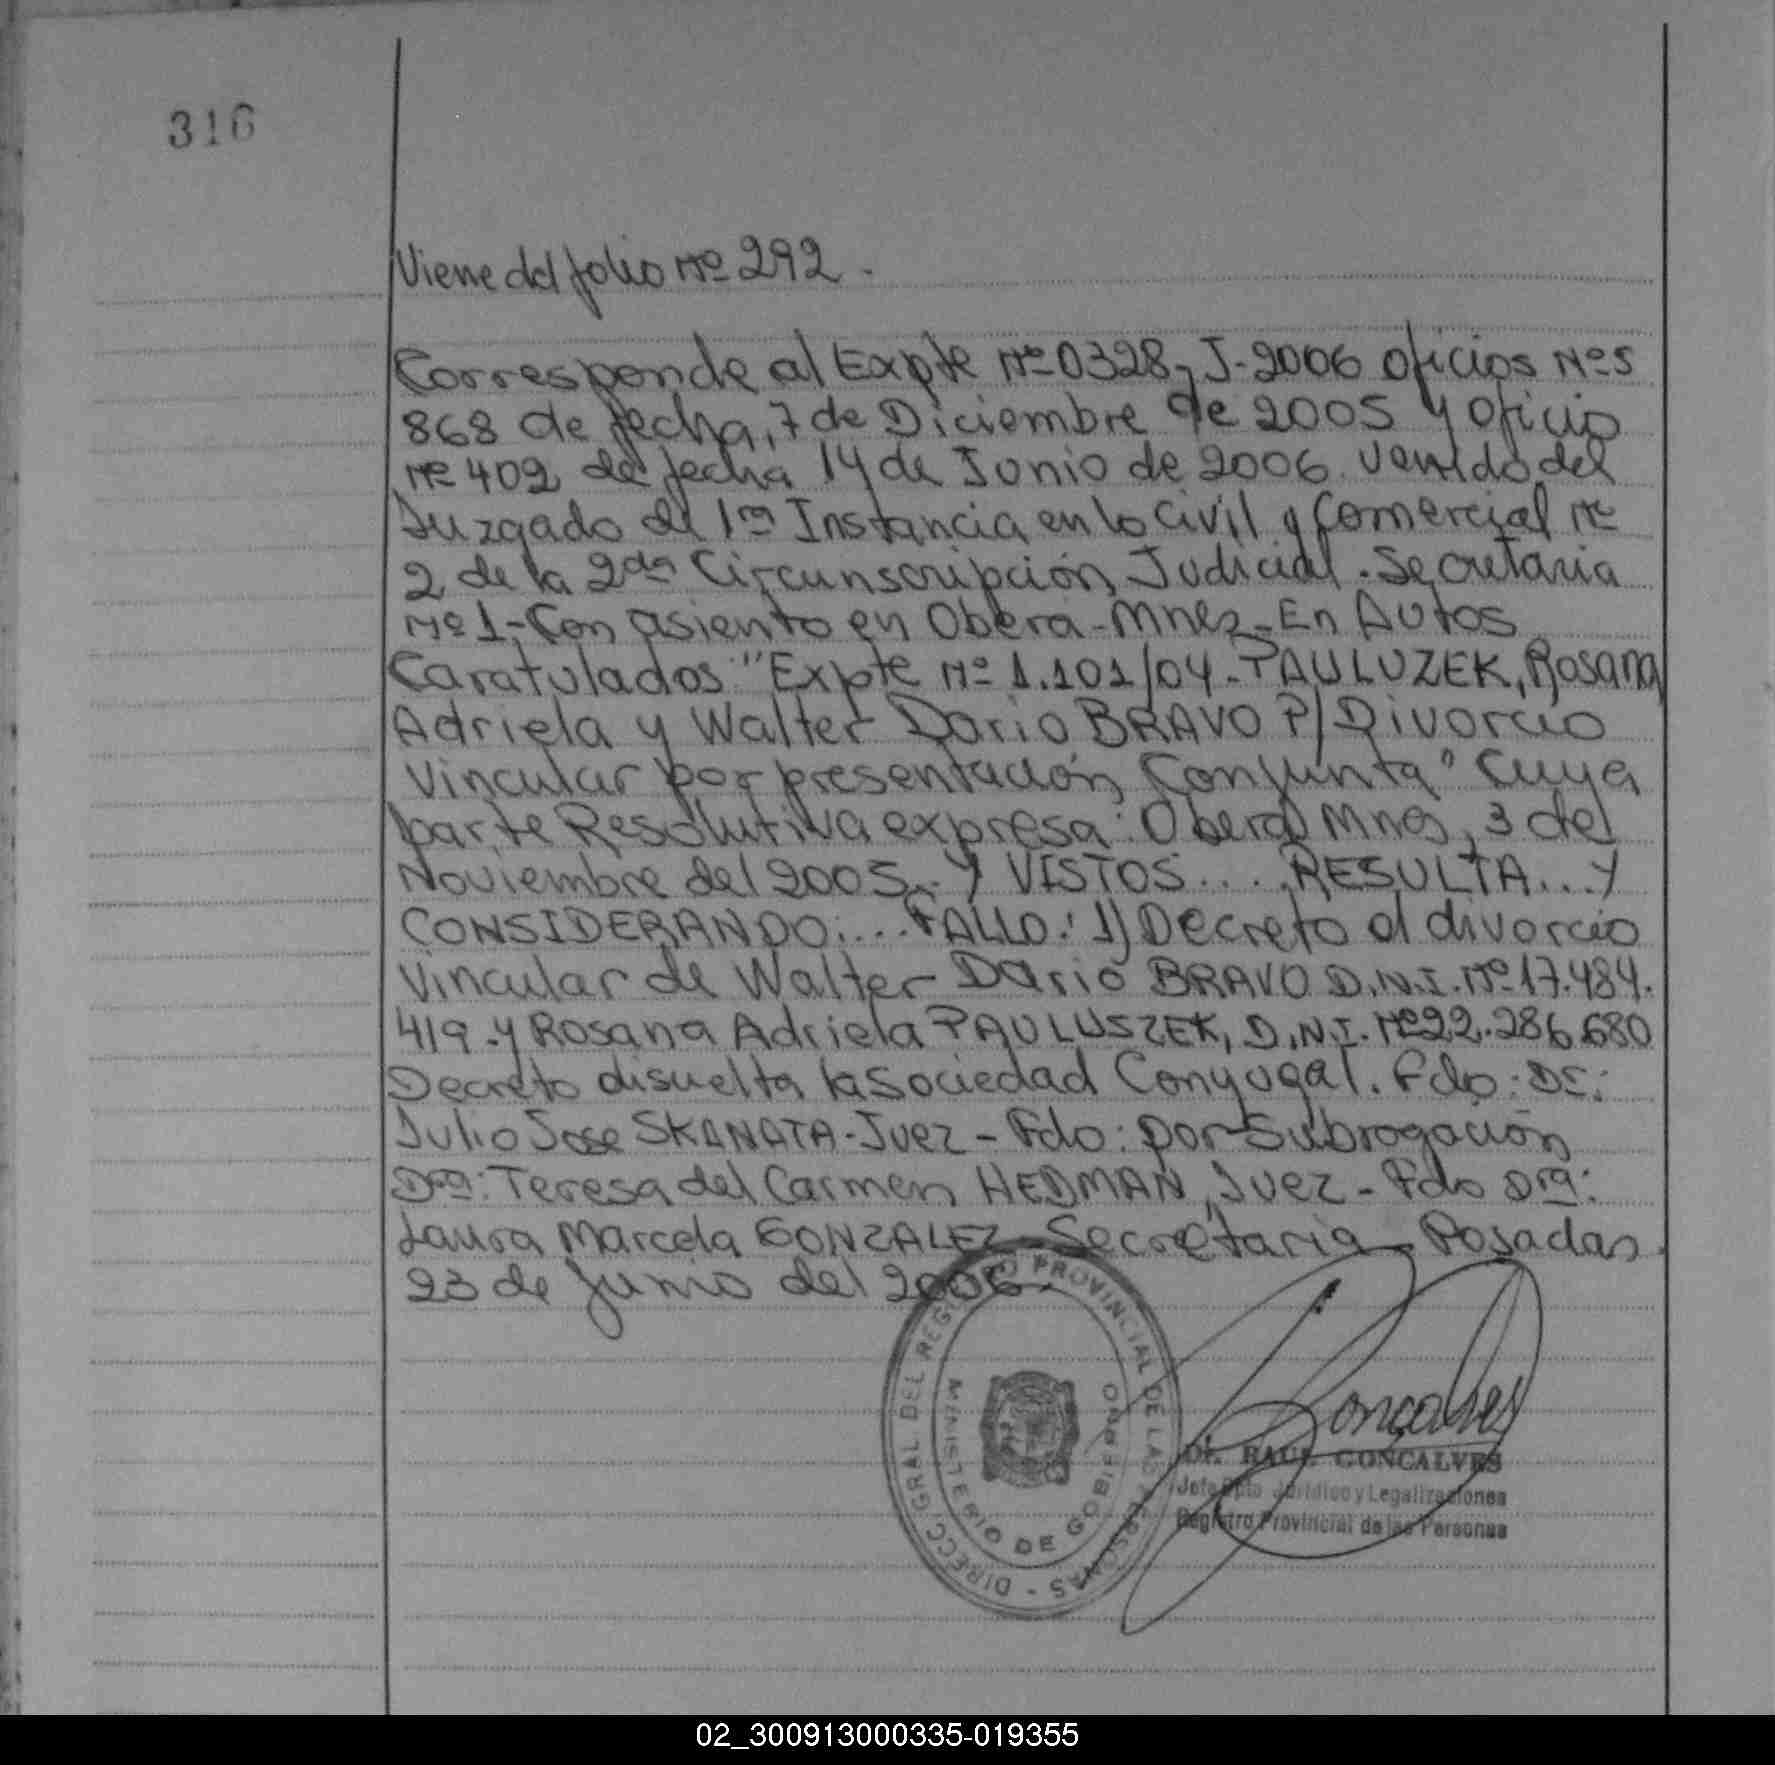 316
Viene del folio Nº 292.
Corresponde al Expte Nº 0328-J-2006 Oficios Nºs
868 de fecha, 7 de Diciembre de 2005 y oficio
Nº 402 de fecha 14 de Junio de 2006. Venido del
Juzgado de 1ra Instancia en lo Civil y Comercial Nº
2 de la 2da Circunscripción Judicial. Secretaria
Nº 1- Con asiento en Obera-Mnes- En Autos
Caratulados "Expte Nº 1.101/04- PAULUZEK, Rosana
Adriela y Walter Dario BRAVO P/ Divorcio
Vincular por presentación Conjunta" Cuya
parte Resolutiva expresa: Obera Mnes, 3 de
Noviembre del 2005.. Y VISTOS.... RESULTA... Y
CONSIDERANDO:... FALLO: 1) Decreto el divorcio
Vincular de Walter Dario BRAVO D.N.I. Nº 17.484.
419.y Rosana Adriela PAULUSZEK, D.N.I. Nº 22.286.680
Decreto disuelta la Sociedad Conyugal. Fdo: Dr:
Julio Jose SKANATA-Juez- Fdo: por Subrogación
Dra: Teresa del Carmen HEDMAN, Juez- Fdo Dra:
Laura Marcela GONZALEZ- Secretaria- Posadas
23 de Junio del 2006-
DIRECC. GRAL. DEL REGISTRO PROVINCIAL DE LAS PERSONAS -
MINISTERIO DE GOBIERNO
Goncalves
Dr. RAUL GONCALVES
Jefe Dpto Jurídico y Legalizaciones
Registro Provincial de las Personas
02_300913000335-019355